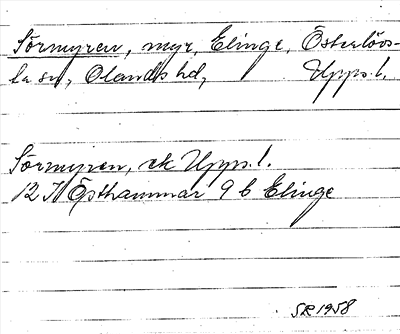 Sörmyren, myr, Elinge, Österlövs-
ta sn, Olands hd, Upps. l.
Sörmyren, ek Upps. l.
12 I Östhammar 9 b Elinge
SR 1958